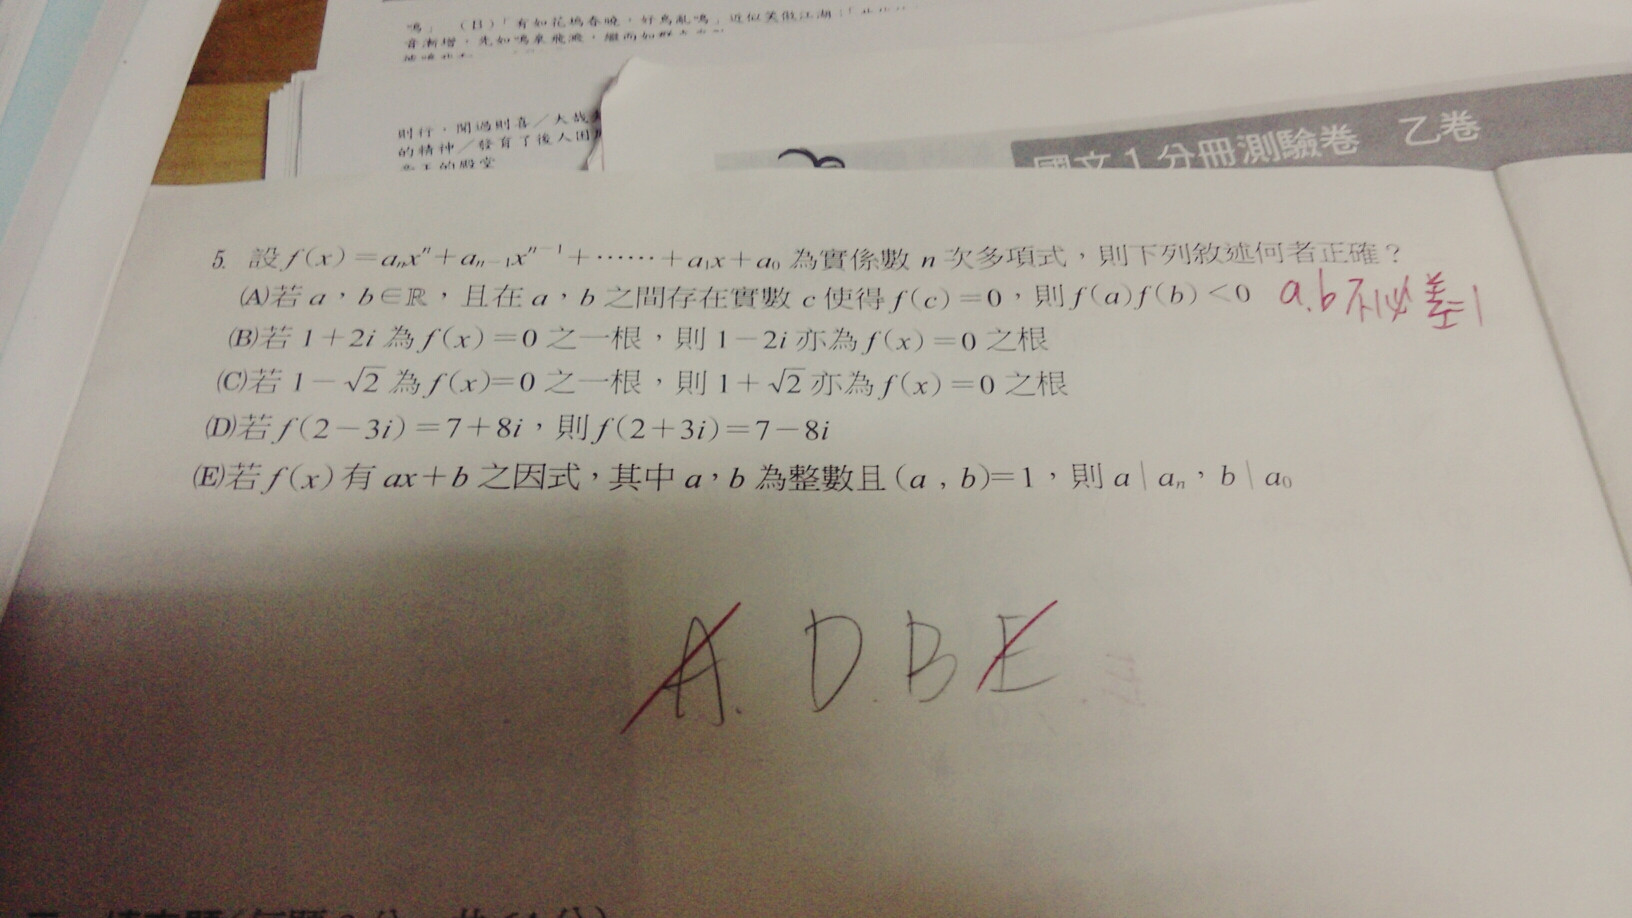 鳴」 (B)「有如花塢春曉,好鳥亂鳴」近似笑傲江湖:「
音漸增,先如鳴泉飛濺,繼而如群
則行,聞過則喜/大哉
的精神/發育了後人因
的殿堂
國文1分冊測驗卷 乙卷
5. 設 f(x)=aₙxⁿ+aₙ₋₁xⁿ⁻¹+……+a₁x+a₀ 為實係數 n 次多項式,則下列敘述何者正確?
(A)若 a,b∈ℝ,且在 a,b 之間存在實數 c 使得 f(c)=0,則 f(a)f(b)<0 a.b不必差1
(B)若 1+2i 為 f(x)=0 之一根,則 1-2i 亦為 f(x)=0 之根
(C)若 1-√2 為 f(x)=0 之一根,則 1+√2 亦為 f(x)=0 之根
(D)若 f(2-3i)=7+8i,則 f(2+3i)=7-8i
(E)若 f(x) 有 ax+b 之因式,其中 a,b 為整數且 (a , b)=1,則 a|aₙ,b|a₀
A. D. B E.